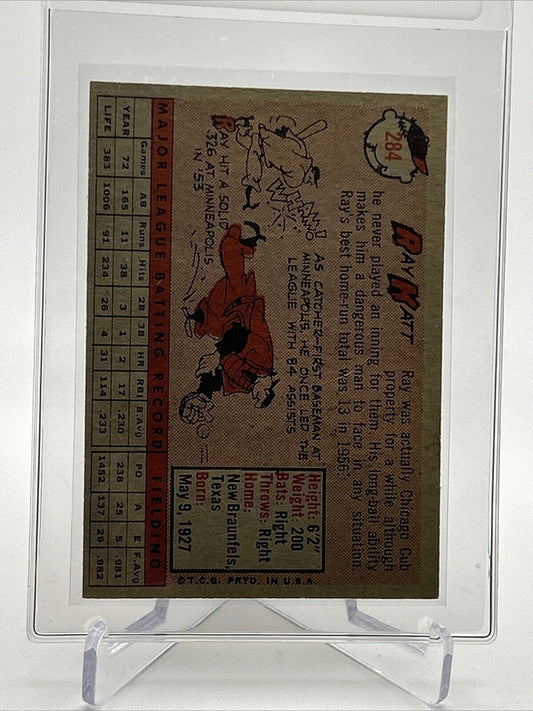 284
RAY KATT
Ray was actually Chicago Cub
property for a while although
he never played an inning for them. His long-ball ability
makes him a dangerous man to face in any situation.
Ray's best home-run total was 13 in 1956.
RAY HIT A SOLID
.326 AT MINNEAPOLIS
IN '53
AS CATCHER-FIRST BASEMAN AT
MINNEAPOLIS, HE ONCE LED THE
LEAGUE WITH 84 ASSISTS
Height: 6'2"
Weight: 200
Bats: Right
Throws: Right
Home:
New Braunfels,
Texas
Born:
May 9, 1927
©T.C.G. PRTD. IN U.S.A.
MAJOR LEAGUE BATTING RECORD FIELDING
Games AB Runs Hits 2B 3B HR RBI B.Avg PO A E F.Avg
YEAR 72 165 11 38 3 1 2 17 .230 238 25 5 .981
LIFE 383 1006 91 234 26 4 31 114 .233 1452 137 29 .982